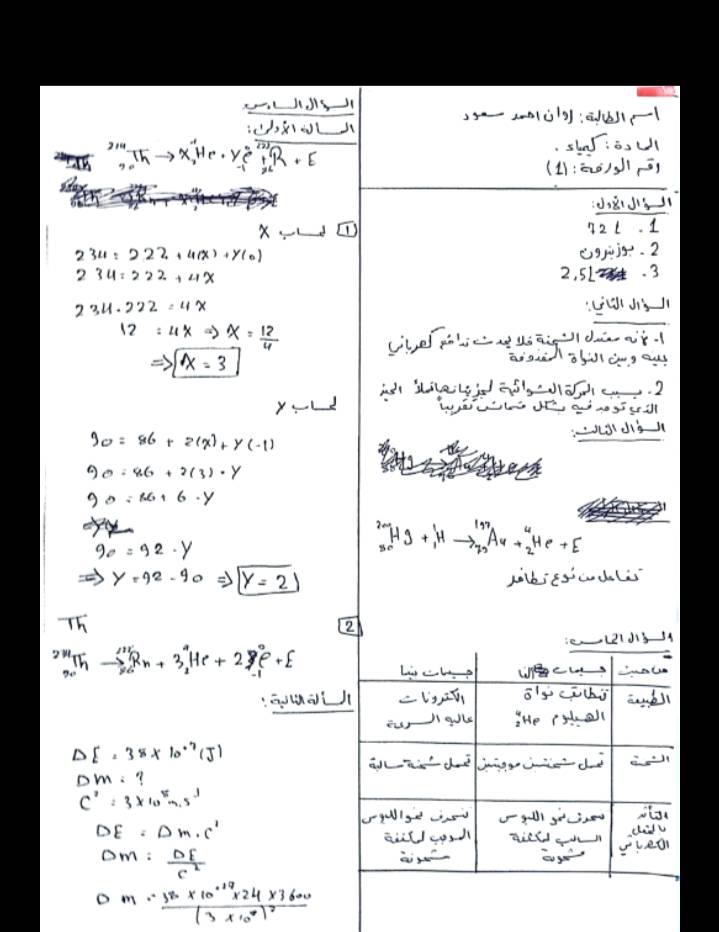 اسم الطالبة: روان احمد سعود
المادة: كيمياء.
رقم الورقة: (1)
السؤال الأول:
1. 72 L
2. بوزيترون
3. 2,5L
السؤال الثاني:
1. لأنه معتدل الشحنة فلا يحدث تدافع كهربائي
بينه وبين النواة المقذوفة
2. بسبب الحركة العشوائية لجزيئاتها فتملأ الحيز
الذي توجد فيه بشكل متجانس تقريباً
السؤال الثالث:
Hg + ¹₁H → ¹⁹⁷₇₉Au + ⁴₂He + E
تفاعل من نوع تطافر
السؤال الخامس:
من حيث جسيمات ألفا جسيمات بيتا
الطبيعة تطابق نواة الكترونات
الهيليوم ⁴₂He عالية السرعة
الشحنة تحمل شحنتين موجبتين تحمل شحنة سالبة
التأثر بالحقل الكهربائي
تنحرف نحو اللبوس السالب لمكثفة مشحونة
تنحرف نحو اللبوس الموجب لمكثفة مشحونة
السؤال السادس
المسألة الأولى:
²³⁴₉₀Th → X⁴₂He + Y⁰₋₁e + ²²²₈₆R + E
1 لحساب X
234 = 222 + 4(X) + Y(0)
234 = 222 + 4X
234 - 222 = 4X
12 = 4X ⇒ X = 12/4
⇒ X = 3
لحساب Y
90 = 86 + 2(X) + Y(-1)
90 = 86 + 2(3) - Y
90 = 86 + 6 - Y
90 = 92 - Y
⇒ Y = 92 - 90 ⇒ Y = 2
2
Th
²³⁴₉₀Th → ²²²₈₆Rn + 3⁴₂He + 2⁰₋₁e + E
المسألة الثانية:
ΔE = 38 x 10⁺²⁷ (J)
Δm = ?
C² = 3 x 10⁸ m.s⁻¹
ΔE = Δm . c²
Δm = ΔE/c²
Δm = 38 x 10⁺²⁷ x 24 x 3600 / (3 x 10⁸)²